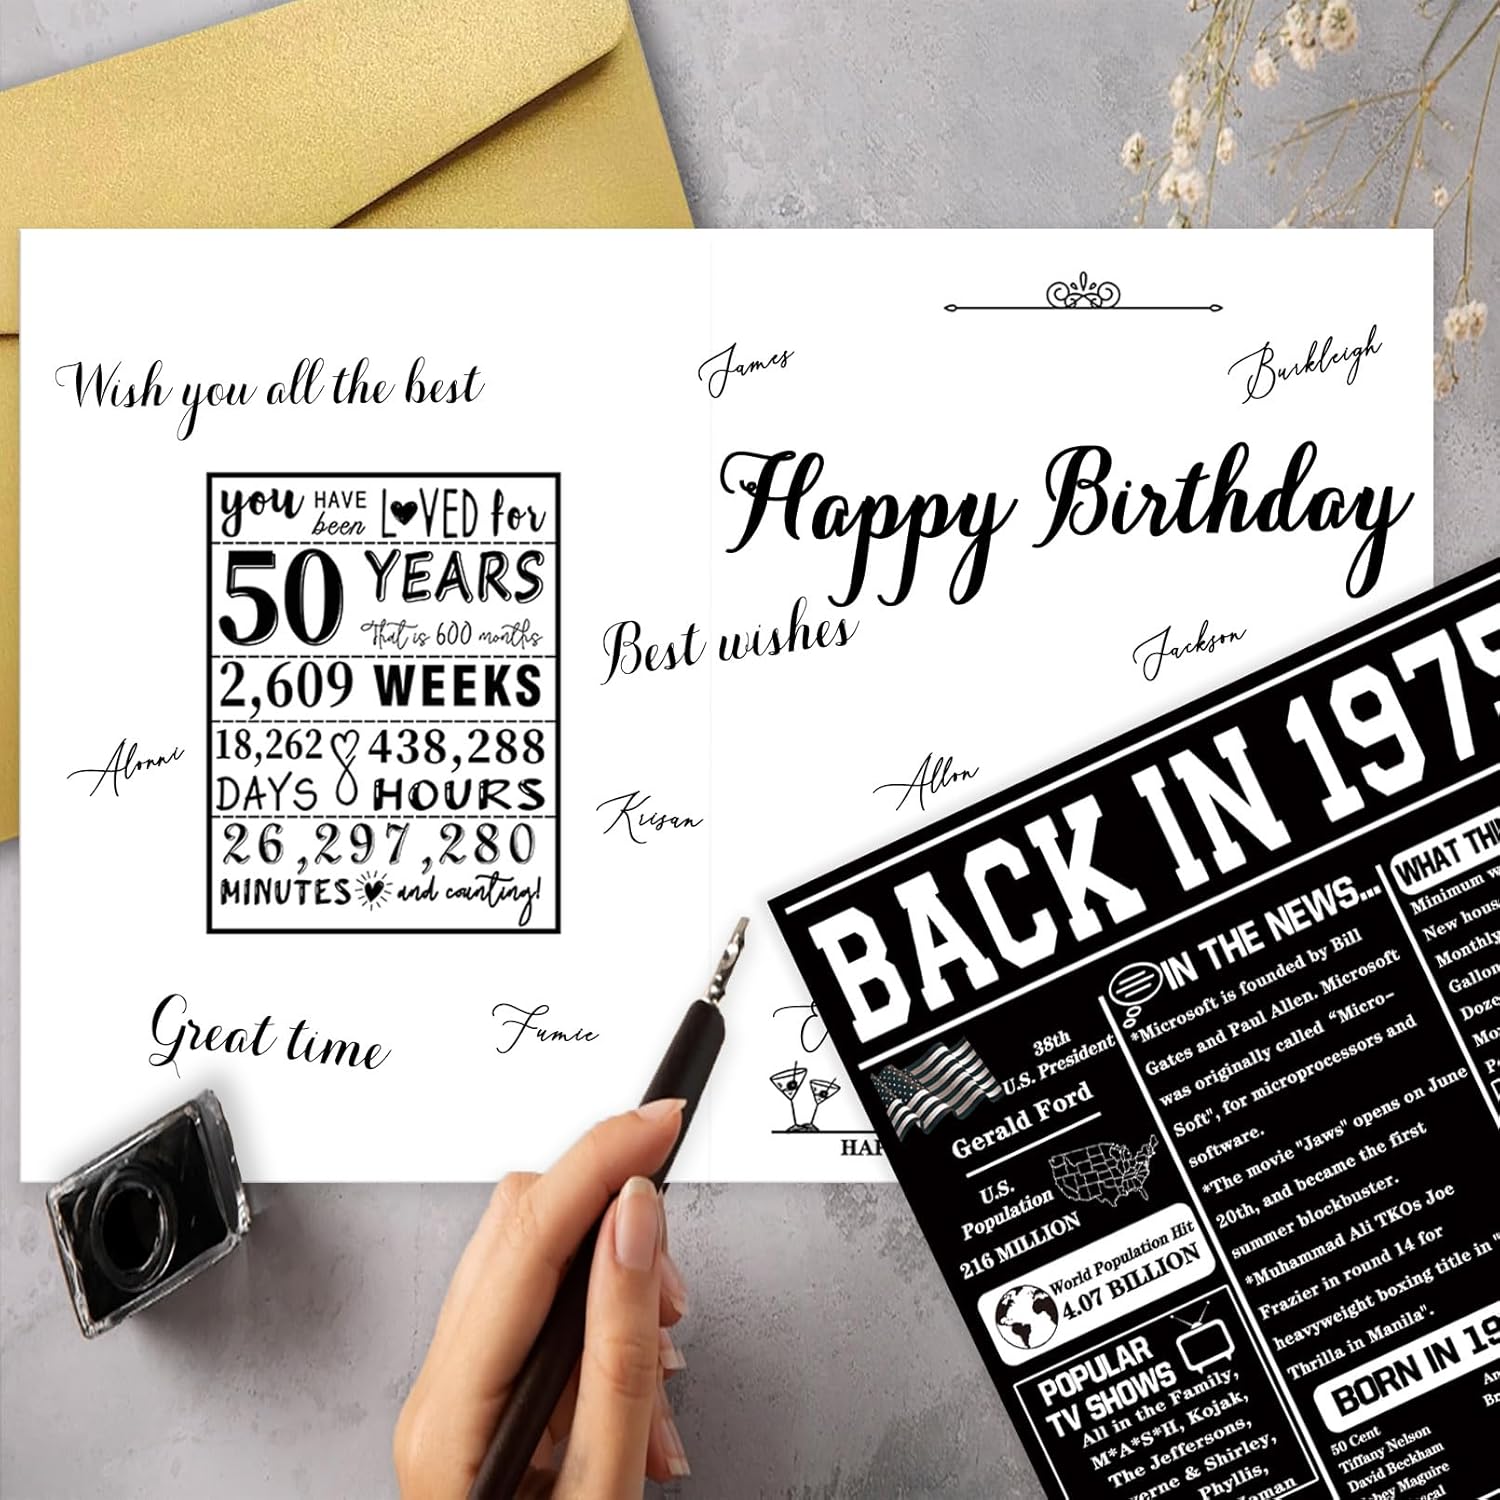 Wish you all the best
James
Burkleigh
you HAVE been LOVED for
50 YEARS
That is 600 months
2,609 WEEKS
18,262 438,288
DAYS HOURS
26,297,280
MINUTES and counting!
Happy Birthday
Best wishes
Jackson
Alonni
Krisan
Allon
Great time
Fumie
HAP
BACK IN 1975
38th
U.S. President
Gerald Ford
U.S.
Population
216 MILLION
World Population Hit
4.07 BILLION
POPULAR
TV SHOWS
All in the Family,
M*A*S*H, Kojak,
The Jeffersons,
verne & Shirley,
Phyllis,
IN THE NEWS...
*Microsoft is founded by Bill
Gates and Paul Allen. Microsoft
was originally called "Micro-
Soft", for microprocessors and
software.
*The movie "Jaws" opens on June
20th, and became the first
summer blockbuster.
*Muhammad Ali TKOs Joe
Frazier in round 14 for
heavyweight boxing title in "
Thrilla in Manila".
WHAT THIN
Minimum w
New hous
Monthly
Gallon
Doze
BORN IN 19
50 Cent
Tiffany Nelson
David Beckham
bey Maguire